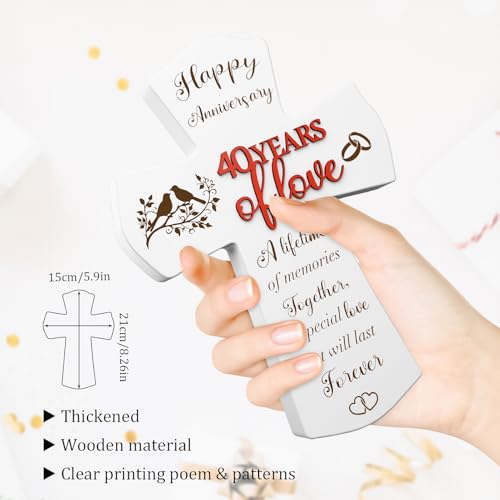 Happy
Anniversary
40 YEARS
of love
A lifetim
of memories
Together,
pecial love
t will last
Forever
15cm/5.9in
21cm/8.26in
▶ Thickened
▶ Wooden material
▶ Clear printing poem & patterns